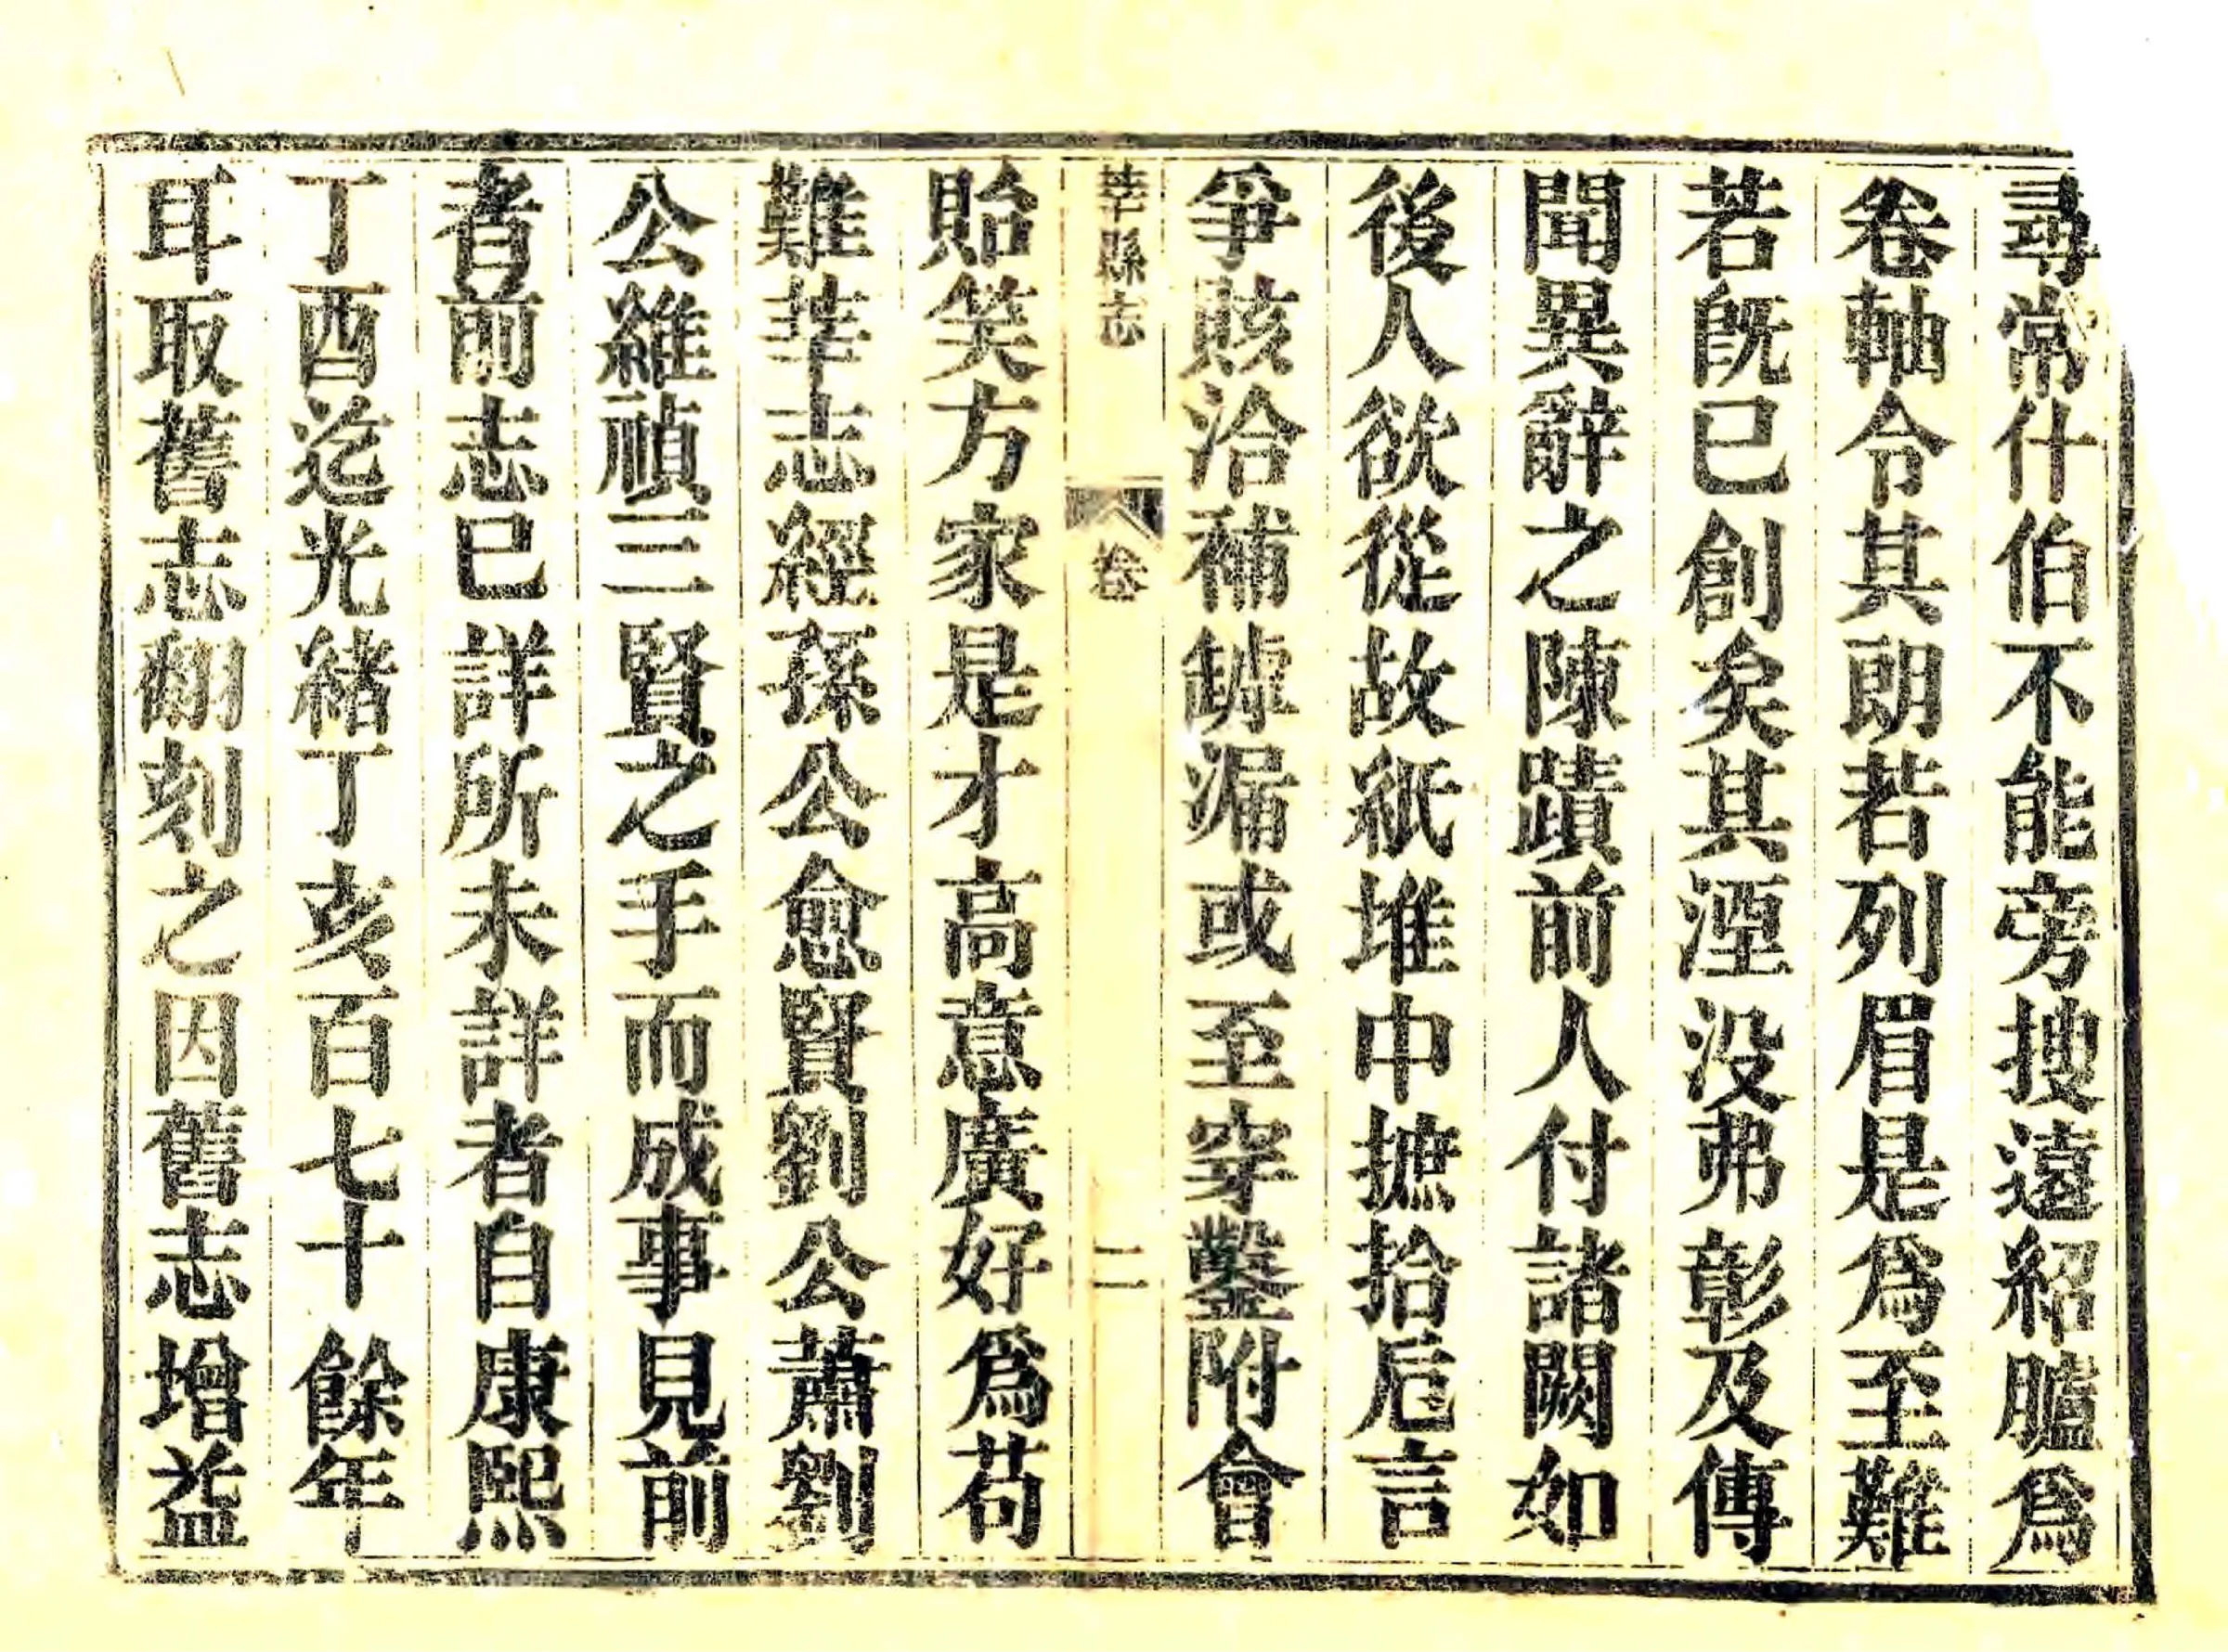 尋常什伯不能旁搜遠紹臚爲
卷軸令其朗若列眉是爲至難
若旣已創矣其湮没弗彰及傳
聞異辭之陳蹟前人付諸闕如
後人欲從故紙堆中摭拾卮言
爭賅洽補罅漏或至穿鑿附會
莘縣志 卷 二
貽笑方家是才高意廣好爲苟
難莘志經孫公愈賢劉公蕭劉
公維禎三賢之手而成事見前
者前志已詳所未詳者自康熙
丁酉迄光緒丁亥百七十餘年
耳取舊志翻刻之因舊志增益